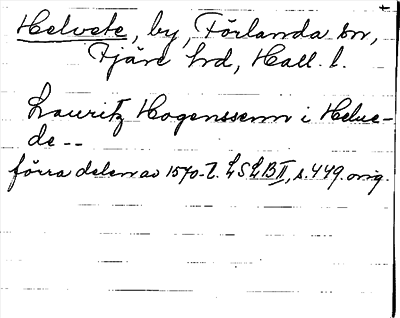 Helvete, by, Förlanda sn,
Fjäre hd, Hall. l.
Lauritz Hogenssenn i Helue-
de --
förra delen av 1570-t. LSLB II, s. 449. orig.